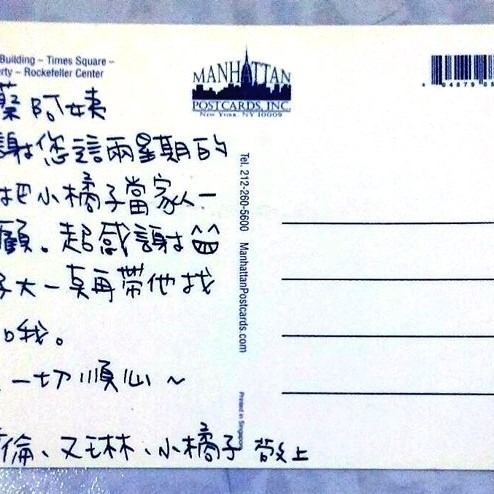 Building – Times Square –
erty – Rockefeller Center
MANHATTAN
POSTCARDS, INC.
New York, NY 10009
蔡阿姨
謝您這兩星期的
把小橘子當家人一
顧。超感謝
子大一點再帶他找
和我。
一切順心~
倫、又琳、小橘子 敬上
Tel. 212-260-5600 ManhattanPostcards.com
Printed in Singapore